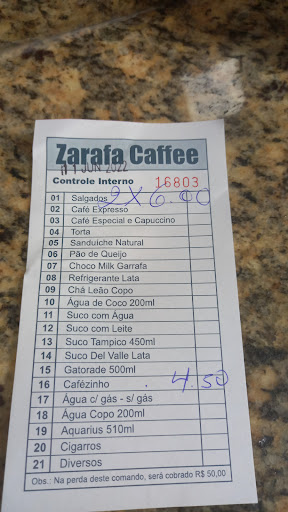 Zarafa Caffee
JUN 2022
Controle Interno 16803
01 Salgados 2x6.00
02 Café Expresso
03 Café Especial e Capuccino
04 Torta
05 Sanduiche Natural
06 Pão de Queijo
07 Choco Milk Garrafa
08 Refrigerante Lata
09 Chá Leão Copo
10 Água de Coco 200ml
11 Suco com Água
12 Suco com Leite
13 Suco Tampico 450ml
14 Suco Del Valle Lata
15 Gatorade 500ml
16 Cafézinho . 4.50
17 Água c/ gás - s/ gás
18 Água Copo 200ml
19 Aquarius 510ml
20 Cigarros
21 Diversos
Obs.: Na perda deste comando, será cobrado R$ 50,00